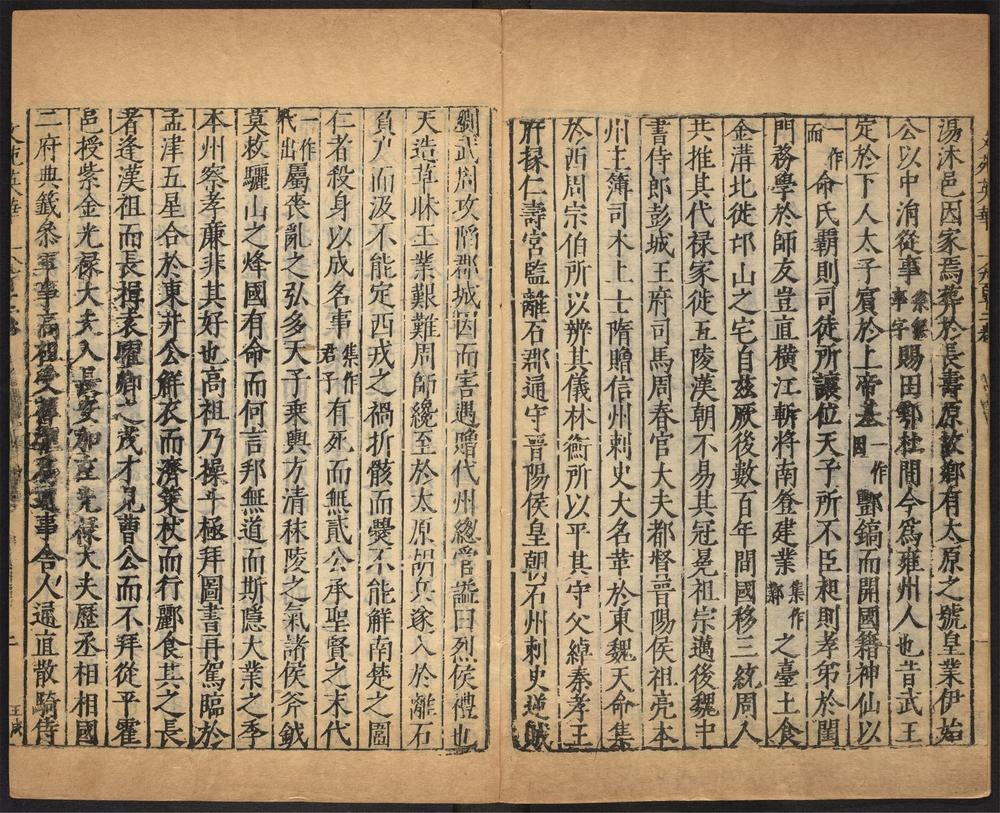 湯沐邑因家焉葬於長壽原故鄉有太原之號皇業伊始
公以中涓從事集無事字賜田鄠杜間今爲雍州人也昔武王
定於下人太子賔於上帝基一作因酆鎬而開國籍神仙以
一作而命氏霸則司徒所讓位天子所不臣昶則孝弟於閨
門務學於師友豈直橫江斬將南登建業集作鄴之臺土食
金溝北徙邙山之宅自兹厥後數百年間國移三統周人
共推其代禄家徙五陵漢朝不易其冠冕祖宗邁後魏中
書侍郎彭城王府司馬周春官大夫都督晉陽侯祖亮本
州主簿司木上士隋贈信州刺史大名革於東魏天命集
於西周宗伯所以辨其儀林衡所以平其守父綽秦孝王
府掾仁壽宮監離石郡通守晉陽侯皇朝石州刺史逆賊
劉武周攻陷郡城因而害遇贈代州總管諡曰烈侯禮也
天造草昧王業艱難周師纔至於太原胡兵遂入於離石
負户而汲不能定西戎之禍折骸而㸑不能解南楚之圍
仁者殺身以成名事集作君子有死而無貳公承聖賢之末代
一作代出屬喪亂之弘多天子乘輿方清秣陵之氣諸侯斧鉞
莫救驪山之烽國有命而何言邦無道而斯隱大業之季
本州察孝廉非其好也高祖乃操斗極拜圖書再駕臨於
孟津五星合於東井公解衣而濟策杖而行酈食其之長
者逢漢祖而長揖袁曜卿之茂才見曹公而不拜從平霍
邑授紫金光禄大夫入長安加左光禄大夫歷丞相相國
二府典籤叅軍事高祖受禪通事舍人通直散騎侍
二